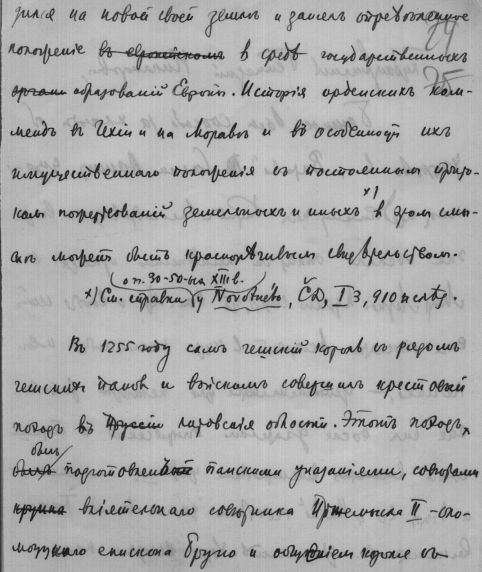 зился на новой своей земли и занял определенное
положение въ европейскомъ в среде государственныхъ
органи образованій Европы. Исторія орденскихъ ком-
мендъ въ Чехіи и на Моравѣ и въ особенности ихъ
имущественнаго положенія съ постояннымъ
пожертвованій земельныхъ и иныхъ х) в этом смы-
слѣ можетъ быть краснорѣчивымъ свидѣтельствомъ.
от 30-50-ых XIII в.
х) См. справки у Novotného, ČD, I 3, 910 и слѣд.
Въ 1255 году самъ чешскій король съ рядомъ
чешскихъ пановъ и войскомъ совершилъ крестовый
походъ въ Пруссіи литовскія области. Этотъ походъ,
былъ
подготовленный папскими указаніями, совѣтами
вліятельнаго совѣтника Пржемысла II - оло-
моуцкаго епископа Бруно и короля съ